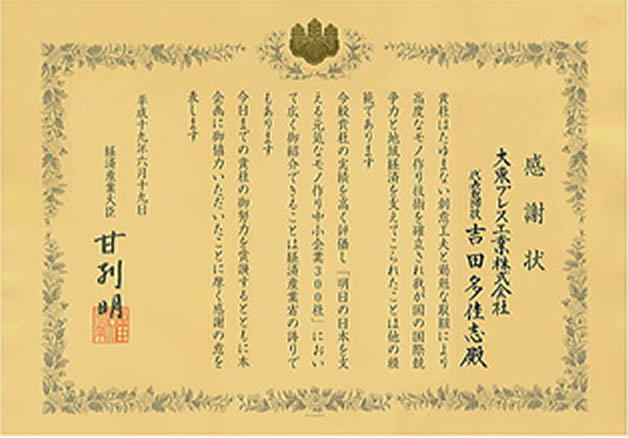 感謝状
大東プレス工業株式会社
代表取締役 吉田多佳志殿
貴社はたゆまない創意工夫と過酷な取組により
高度なモノ作り技術を確立され我が国の国際競
争力と地域経済を支えてこられたことは他の模
範であります
今般貴社の実績を高く評価し「明日の日本を支
える元気なモノ作り中小企業300社」におい
て広く御紹介できることは経済産業省の誇りで
もあります
今日までの貴社の御努力を賞讃するとともに本
企画に御協力いただいたことに厚く感謝の意を
表します
平成十九年六月十九日
経済産業大臣
甘利明